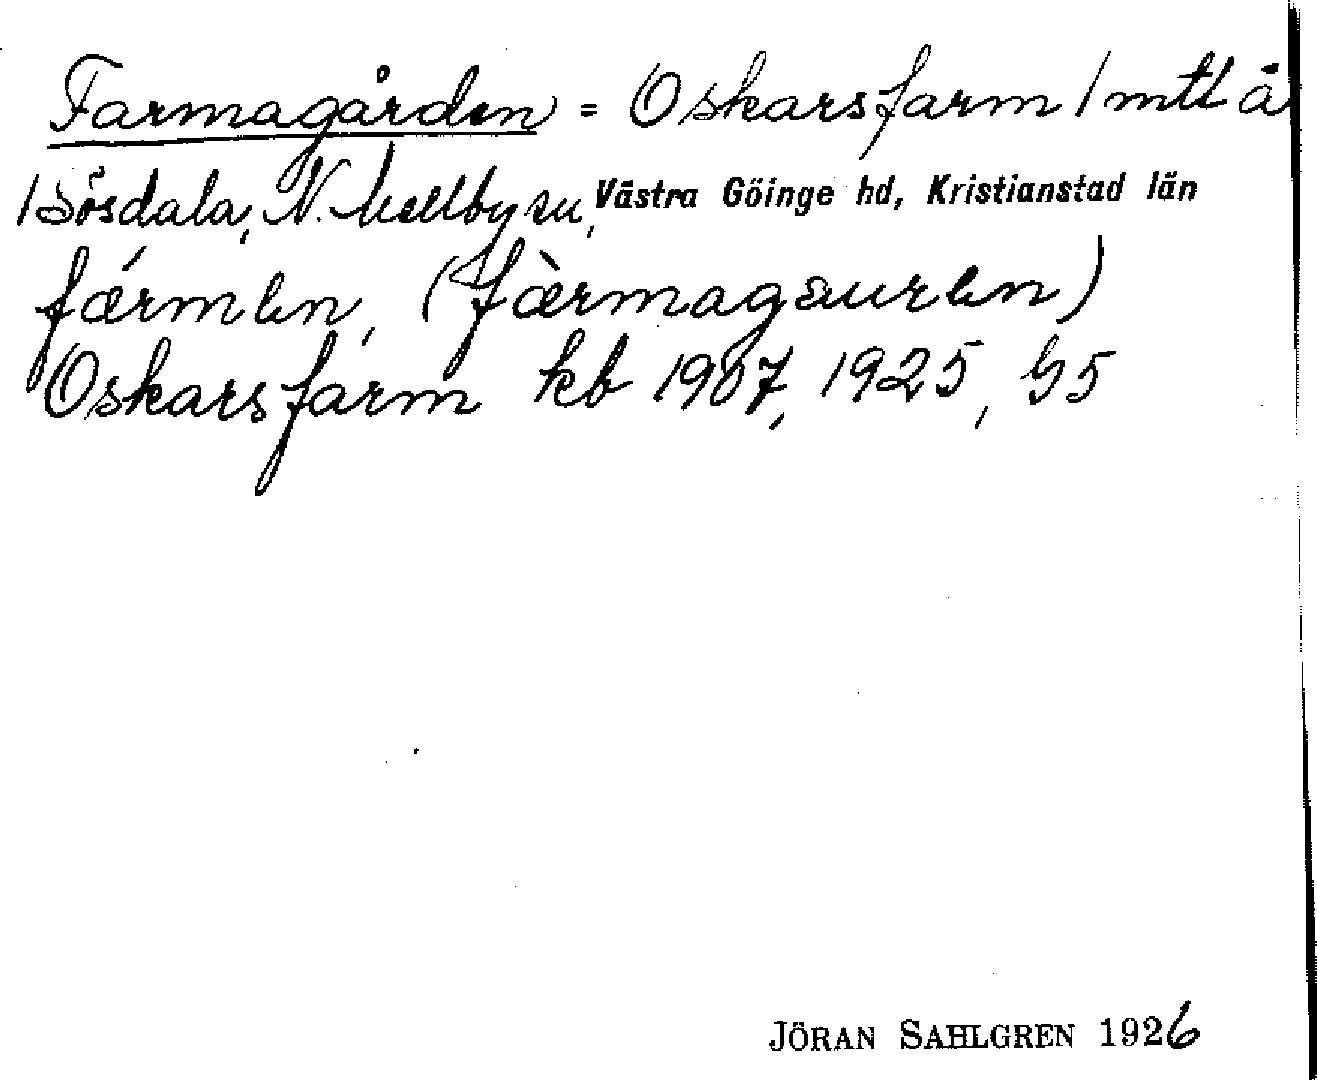 Farmagården = Oskarsfarm / mtl å
/ Sösdala, N. Mellby sn, Västra Göinge hd, Kristianstad län
færmen, (færmagauren)
Oskarsfarm kb 1907, 1925, G5
JÖRAN SAHLGREN 1926